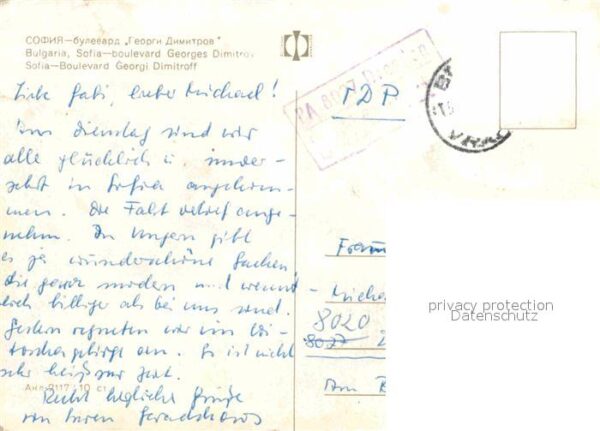 СОФИЯ—булевард „Георги Димитров"
Bulgaria, Sofia—boulevard Georges Dimitrov
Sofia—Boulevard Georgi Dimitroff
Liebe Gabi, lieber Michael!
Am Dienstag sind wir
alle glücklich u. unver-
sehrt in Sofia angekom-
men. Die Fahrt verlief ange-
nehm. In Ungarn gibt
es ja wunderschöne Sachen
die ganz modern und wesent-
lich billiger als bei uns sind.
Gestern regneten wir im Wi-
toschagebirge an. Es ist nicht
sehr heiß zur Zeit.
Recht herzliche Grüße
von Euren
Анк 2117 10 ст
PA 8027 Dresden
TDP
VRAC
Frau
Michae
8020
8027
Am
privacy protection
Datenschutz